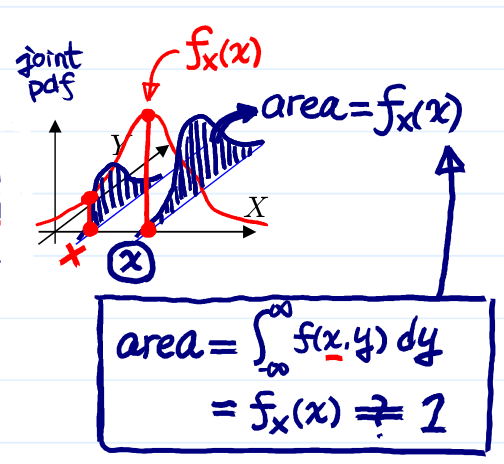 joint
pdf
f_X(x)
area = f_X(x)
Y
X
x
x
area = ∫_{-∞}^{∞} f(x,y) dy
= f_X(x) ≟ 1